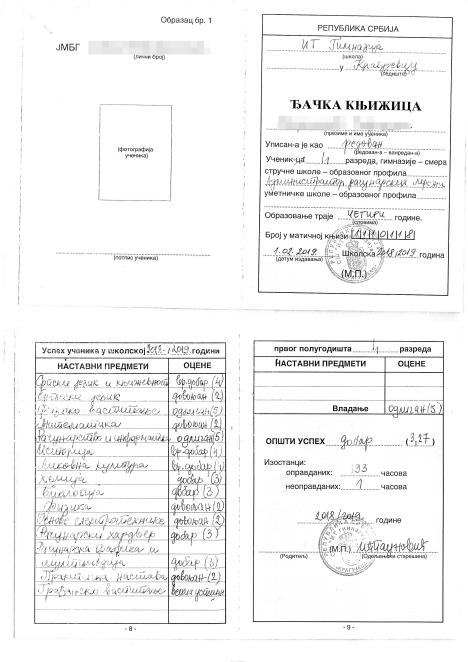 Образац бр. 1
ЈМБГ
(лични број)
(фотографија
ученика)
(потпис ученика)
РЕПУБЛИКА СРБИЈА
ИТ Гимназија
(школа)
у Крагујевцу
(седиште)
ЂАЧКА КЊИЖИЦА
(презиме и име ученика)
Уписан-а је као редован
(редован-а – ванредан-а)
Ученик-ца разреда, гимназије – смера
стручне школе – образовног профила
Администратор рачунарских мрежа
уметничке школе – образовног профила
Образовање траје ЧЕТИРИ године.
(словима)
Број у матичној књизи
1.02.2019 Школска 2018/2019 година
(датум издавања)
(М.П.)
Успех ученика у школској 2018/2019 години
НАСТАВНИ ПРЕДМЕТИ ОЦЕНЕ
Српски језик и књижевност вр.добар (4)
Енглески језик довољан (2)
Физичко васпитање одличан (5)
Математика довољан (2)
Рачунарство и информатика одличан (5)
Историја вр.добар (4)
Ликовна култура вр.добар (4)
Хемија добар (3)
Биологија добар (3)
Физика довољан (2)
Основе електротехнике довољан (2)
Рачунарски хардвер добар (3)
Рачунарска графика и
мултимедија добар (3)
Практична настава довољан (2)
Грађанско васпитање веома успешан
- 8 -
првог полугодишта разреда
НАСТАВНИ ПРЕДМЕТИ ОЦЕНЕ
Владање одличан (5)
ОПШТИ УСПЕХ добар (3,27)
Изостанци:
оправданих: 133 часова
неоправданих: 1 часова
2018/2019 године
(М.П.)
(Родитељ) (Одељењски старешина)
- 9 -